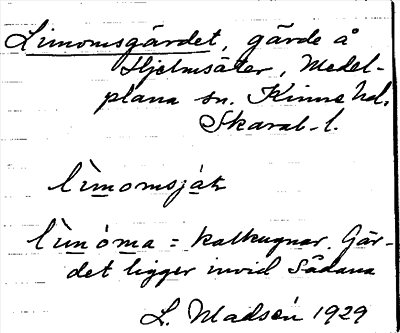 Limomsgärdet, gärde å
Hjelmsäter, Medel-
plana sn. Kinne hd.
Skarab. l.
lìmomsjäḱ
lìmòma = kalkugnar. Gär-
det ligger invid Sådana
L. Madsén 1929